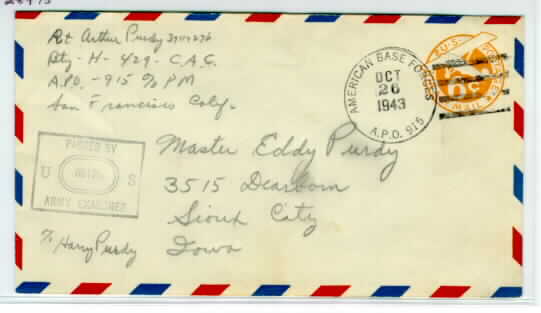 Pvt Arthur Purdy
Bty - H - 429 - C.A.C.
A.P.O. - 915 % P M
San Francisco Calif.
AMERICAN BASE FORCES
OCT
26
1943
A.P.O. 915
U.S.
MAIL
6¢
PASSED BY
U S
ARMY EXAMINER
Master Eddy Purdy
3515 Dearborn
Sioux City
Iowa
% Harry Purdy